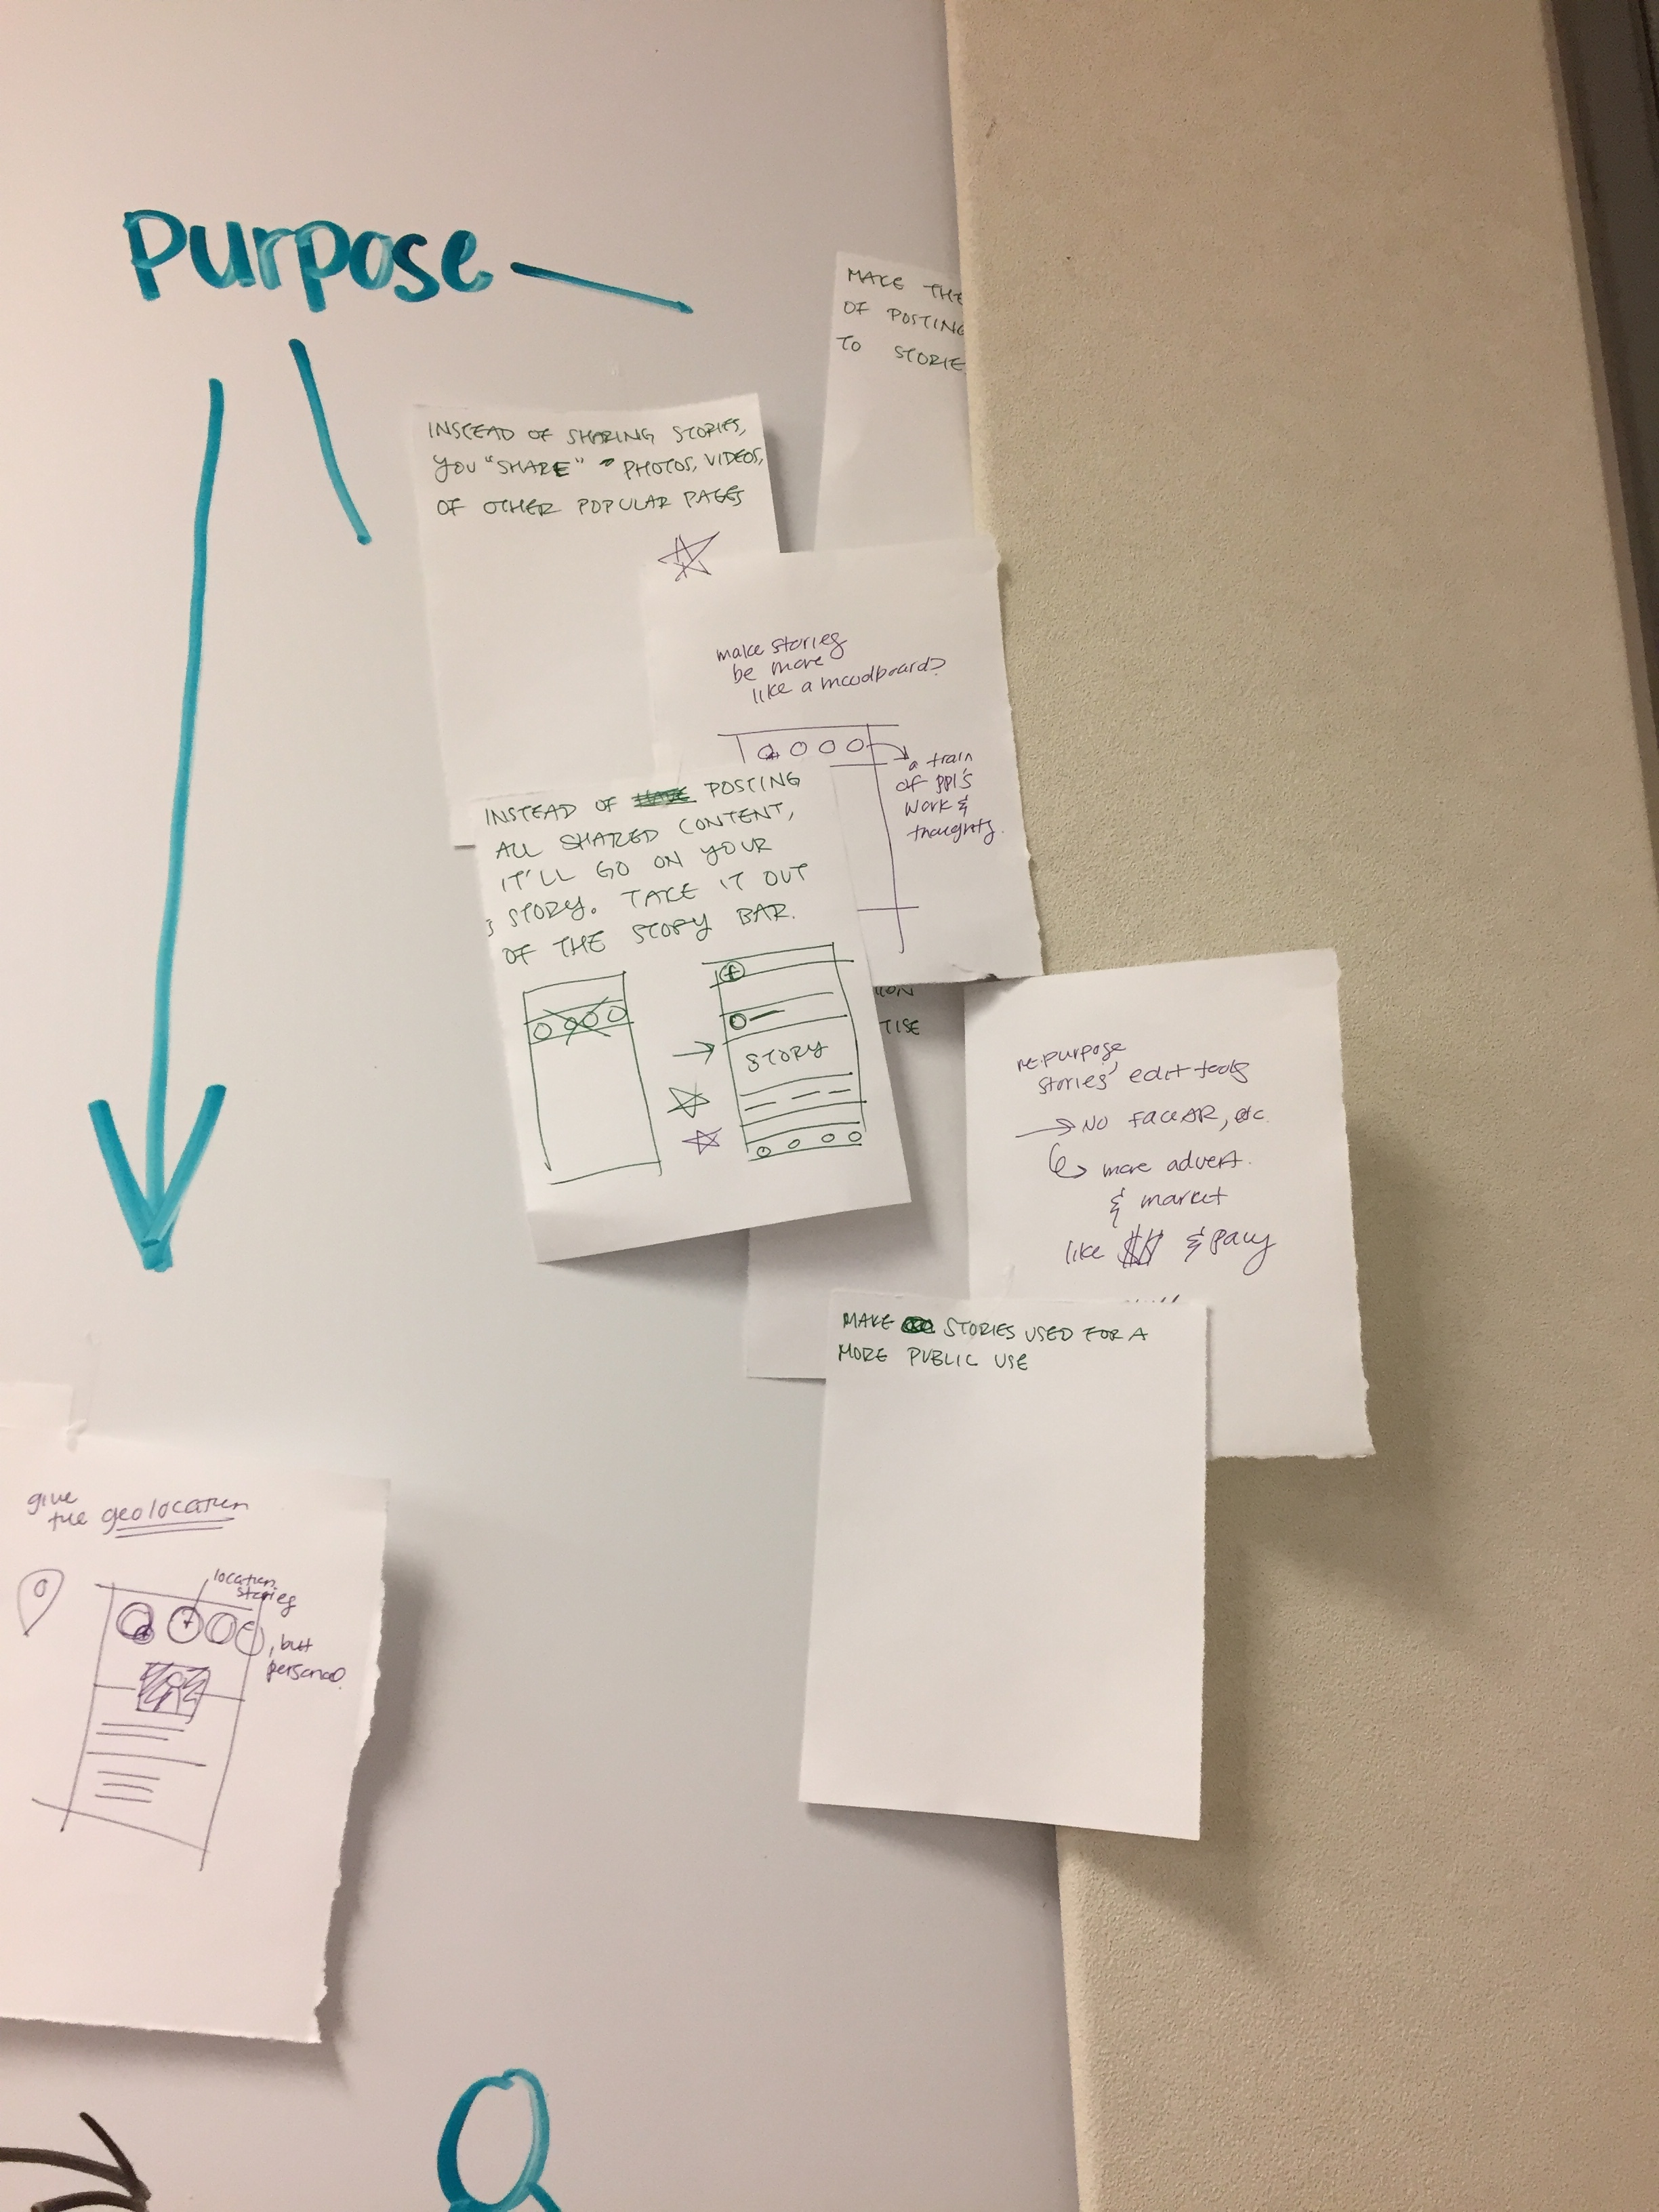 Purpose
MAKE THE
OF POSTING
TO STORIE
INSTEAD OF SHARING STORIES,
YOU "SHARE" PHOTOS, VIDEOS,
OF OTHER POPULAR PAGES
make stories
be more
like a moodboard?
a train
of ppl's
work &
thoughts.
INSTEAD OF POSTING
ALL SHARED CONTENT,
IT'LL GO ON YOUR
STORY. TAKE IT OUT
OF THE STORY BAR.
f
STORY
TISE
repurpose
stories' edit tools
→ NO faceAR, etc.
↳ more advert.
& market
like &
MAKE STORIES USED FOR A
MORE PUBLIC USE
give
the geolocation
location
stories
, but
personal.